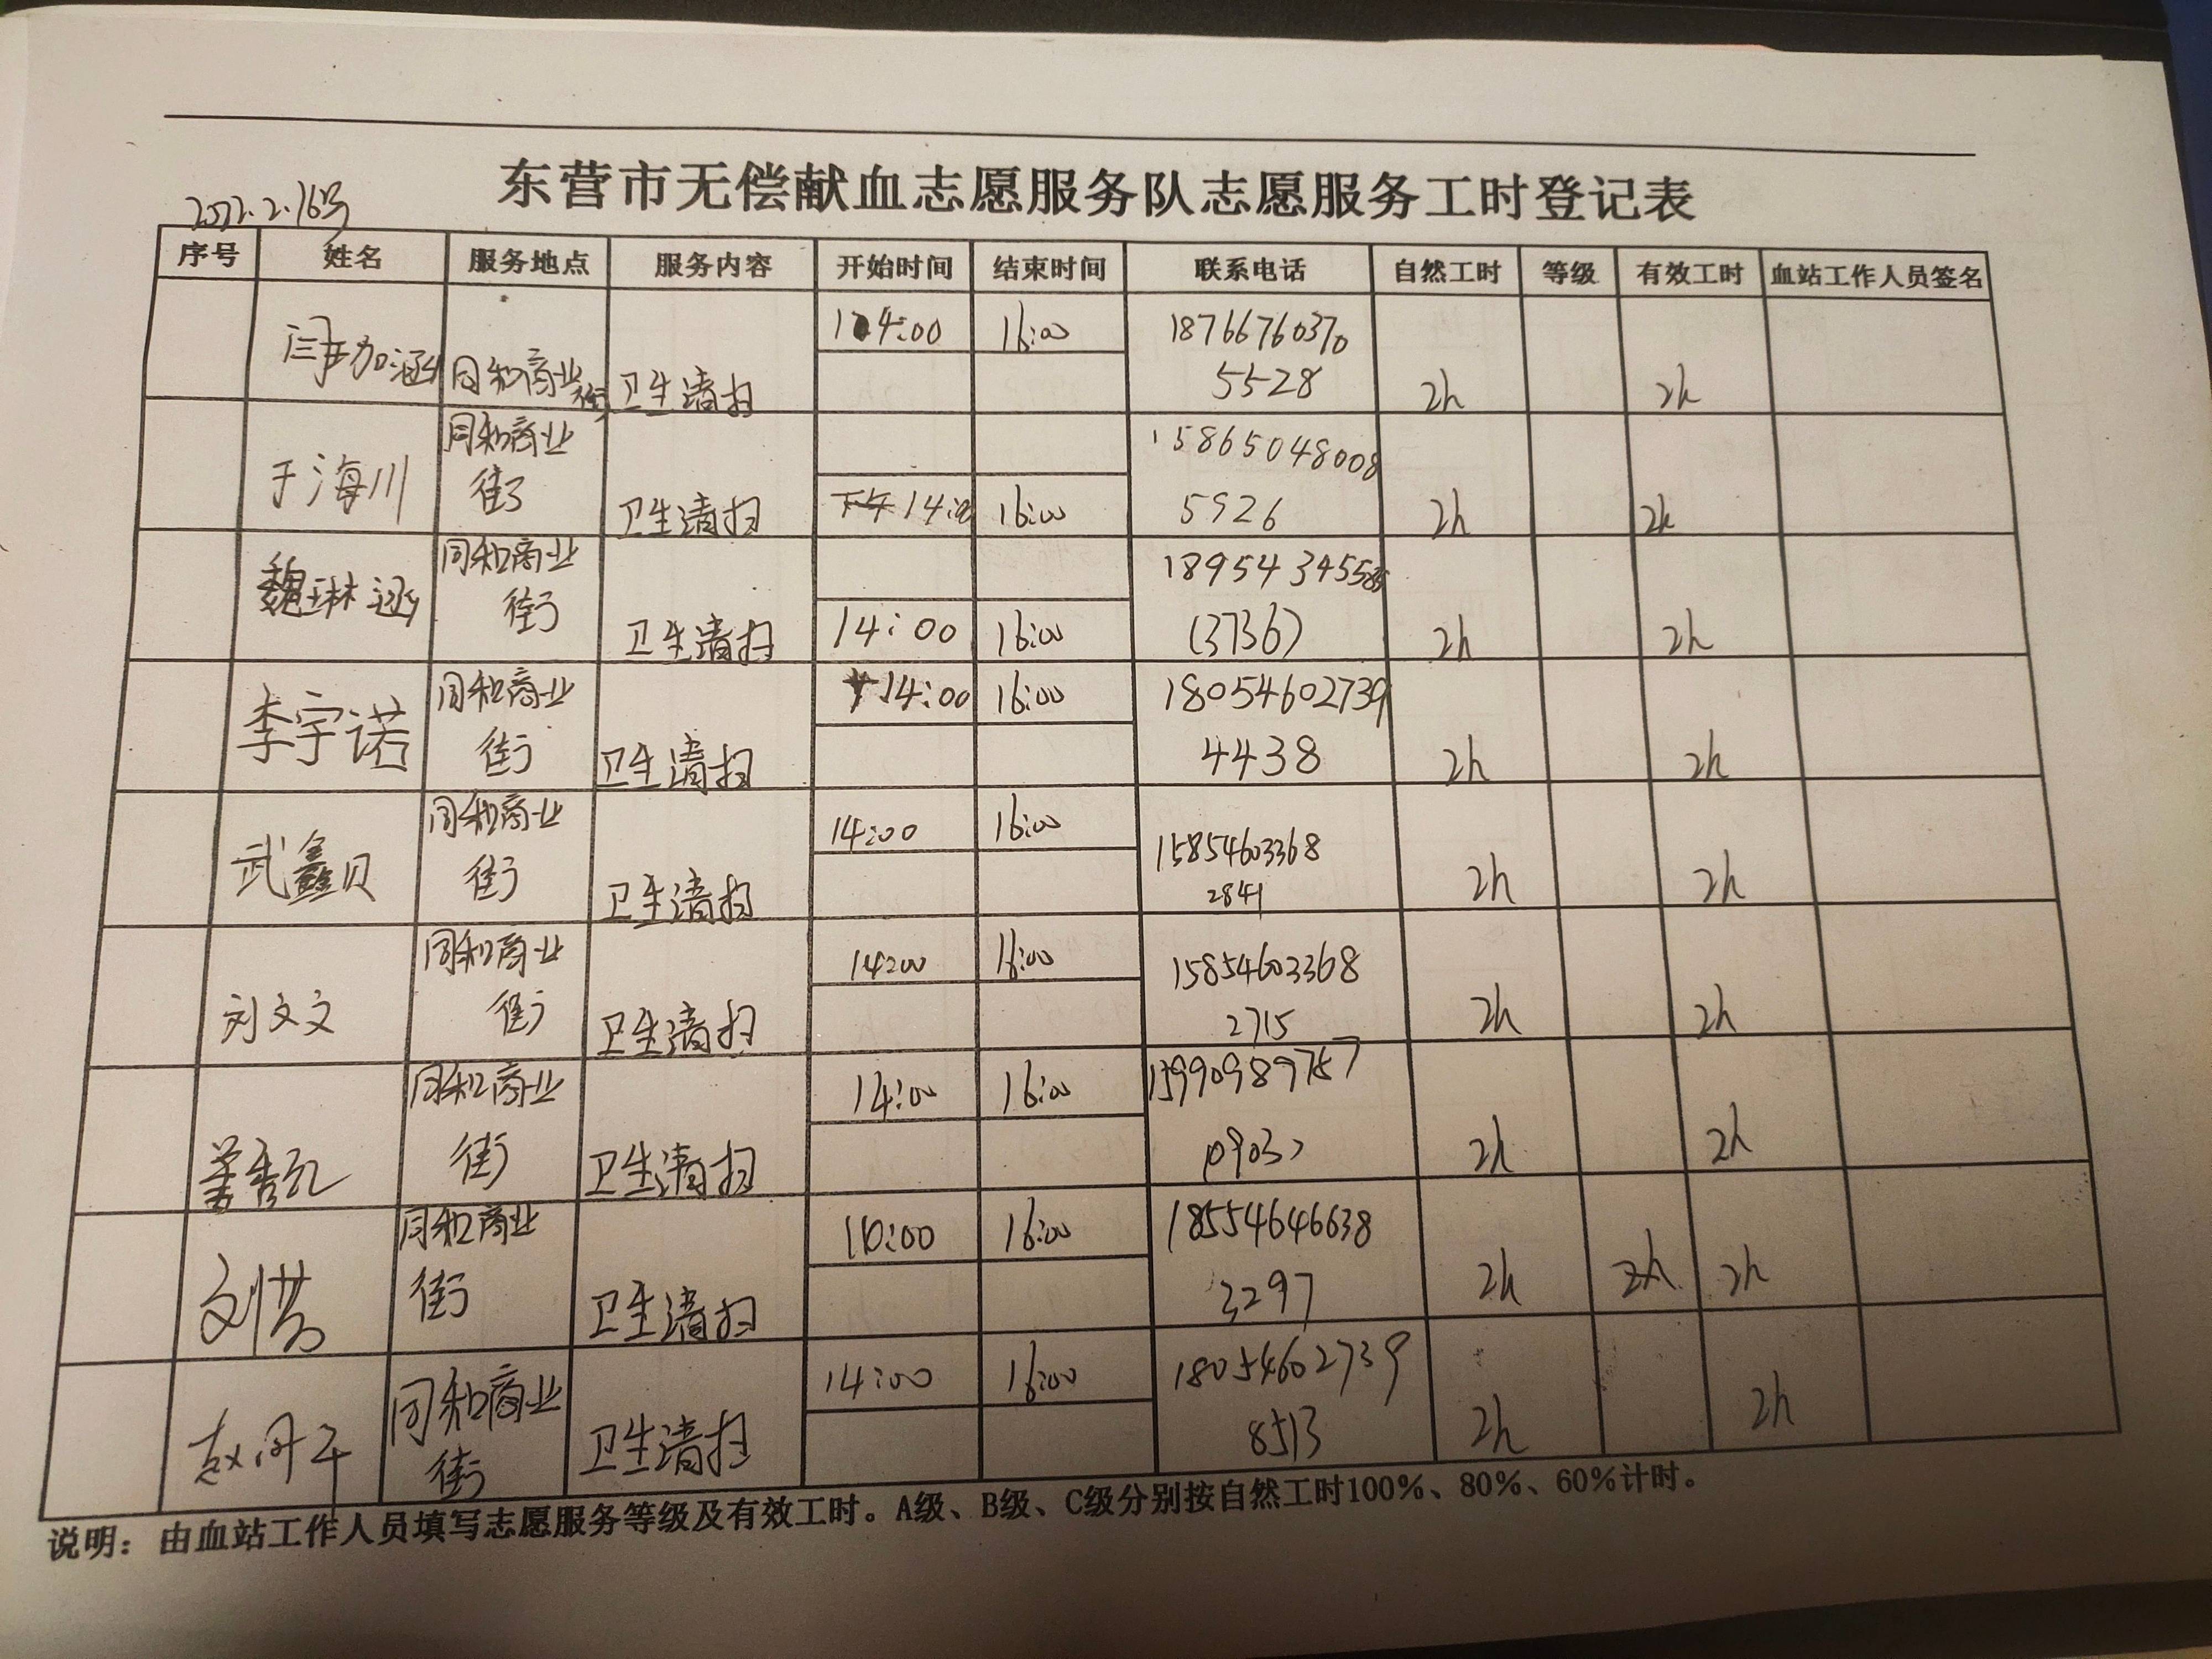 东营市无偿献血志愿服务队志愿服务工时登记表
2022.2.16号
序号 姓名 服务地点 服务内容 开始时间 结束时间 联系电话 自然工时 等级 有效工时 血站工作人员签名
加涵 同和商业街 卫生清扫 14:00 16:00 18766760370
5528 2h 2h
于海川 同和商业 15865048008
街 卫生清扫 14:00 16:00 5926 2h 2h
魏琳涵 同和商业
街 卫生清扫 14:00 16:00 (3736) 2h 2h
李宇诺 同和商业 14:00 16:00 18054602739
街 卫生清扫 4438 2h 2h
武鑫贝 同和商业 14:00 16:00 15854603368
街 卫生清扫 2841 2h 2h
刘文文 同和商业 14:00 16:00 15854603368
街 卫生清扫 2715 2h 2h
同和商业 14:00 16:00
街 卫生清扫 2h 2h
同和商业 16:00 18554646638
街 卫生清扫 3297 2h 2h 2h
同和商业 14:00 16:00 18054602739
街 卫生清扫 8513 2h 2h
说明：由血站工作人员填写志愿服务等级及有效工时。A级、B级、C级分别按自然工时100%、80%、60%计时。